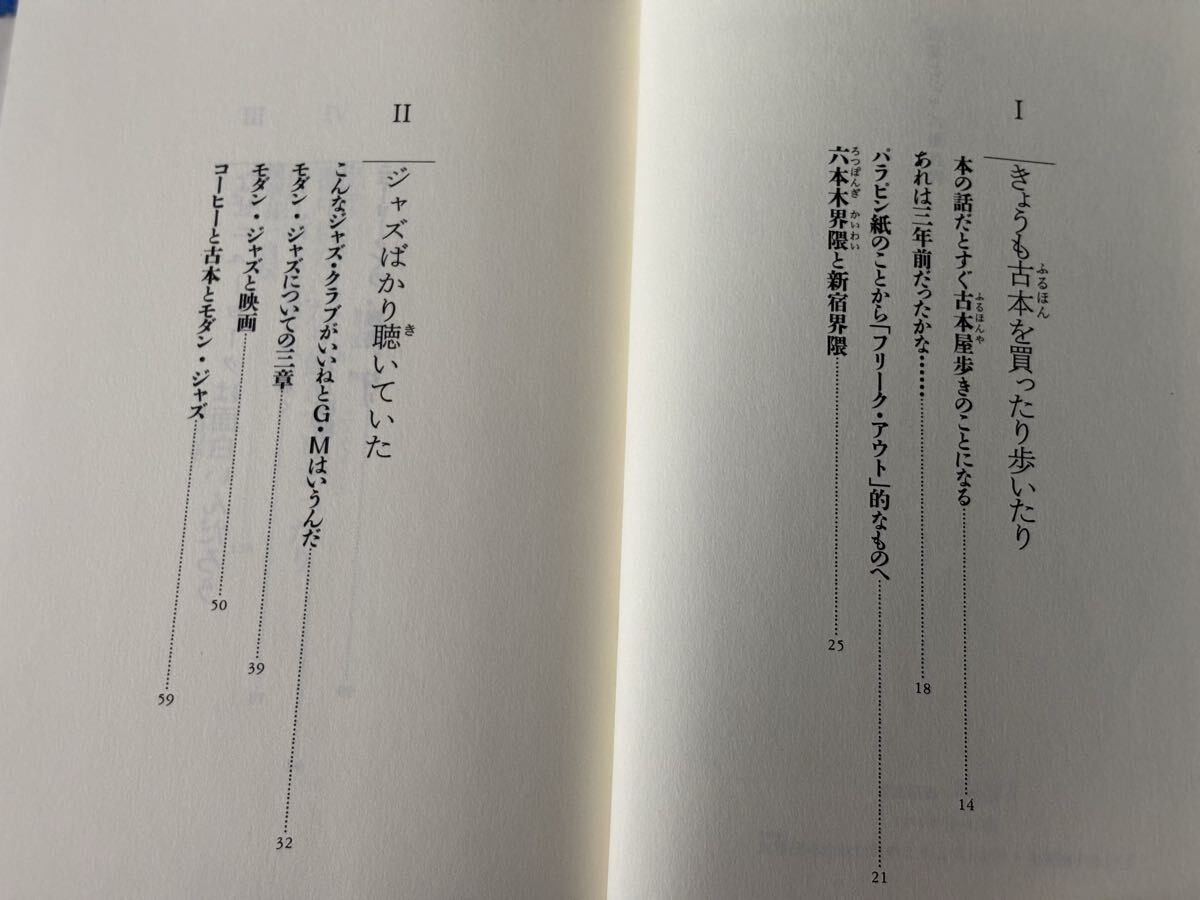 I
きょうも古本を買ったり歩いたり
本の話だとすぐ古本屋歩きのことになる……14
あれは三年前だったかな……18
パラピン紙のことから「フリーク・アウト」的なものへ……21
六本木界隈と新宿界隈……25
II
ジャズばかり聴いていた
こんなジャズ・クラブがいいねとG・Mはいうんだ……32
モダン・ジャズについての三章……39
モダン・ジャズと映画……50
コーヒーと古本とモダン・ジャズ……59